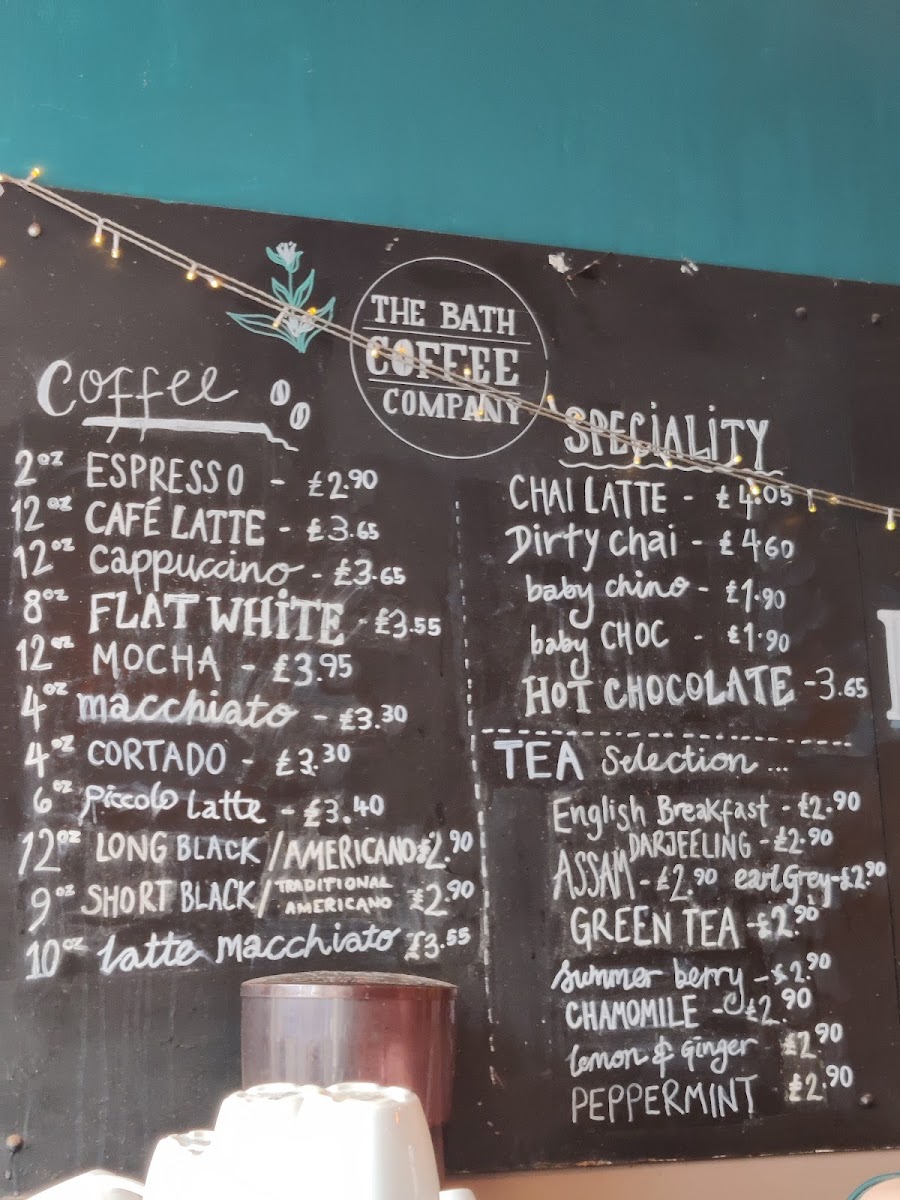 THE BATH
COFFEE
COMPANY
Coffee
2oz ESPRESSO - £2.90
12oz CAFÉ LATTE - £3.65
12oz Cappuccino - £3.65
8oz FLAT WHITE - £3.55
12oz MOCHA - £3.95
4oz macchiato - £3.30
4oz CORTADO - £3.30
6oz Piccolo Latte - £3.40
12oz LONG BLACK / AMERICANO £2.90
9oz SHORT BLACK / TRADITIONAL AMERICANO £2.90
10oz Latte macchiato £3.55
SPECIALITY
CHAI LATTE - £4.05
Dirty chai - £4.60
baby chino - £1.90
baby CHOC - £1.90
HOT CHOCOLATE - 3.65
TEA Selection ...
English Breakfast - £2.90
DARJEELING - £2.90
ASSAM - £2.90 earl Grey - £2.90
GREEN TEA - £2.90
Summer berry - £2.90
CHAMOMILE - £2.90
lemon & Ginger £2.90
PEPPERMINT £2.90